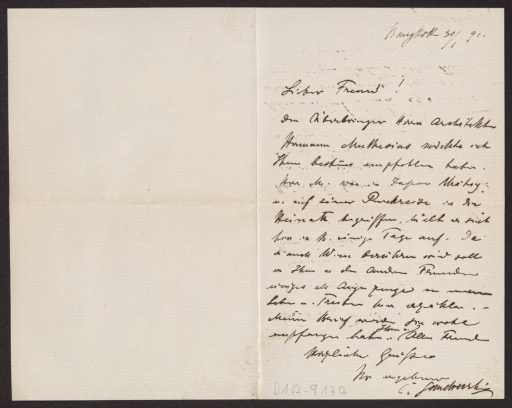 Bangkok 30/1 91.
Lieber Freund!
Dem Überbringer Herrn Architekten
Hermann Muthesius möchte ich
Ihnen bestens empfohlen haben.
Herr M. war in Japan thätig;
u. auf einer Rückreise in die
Heimath begriffen, hielt er sich
hier in B. einige Tage auf. Da
er auch Wien berühren wird soll
er Ihnen u. den anderen Freunden
einiges als Augenzeuge von unserem
Leben u. Treiben hier erzählen. –
Meinen Brief werden Sie wohl
empfangen haben. Allen Freunden
herzliche Grüsse
Ihr ergebener
C. Sandreczki
D102-9170